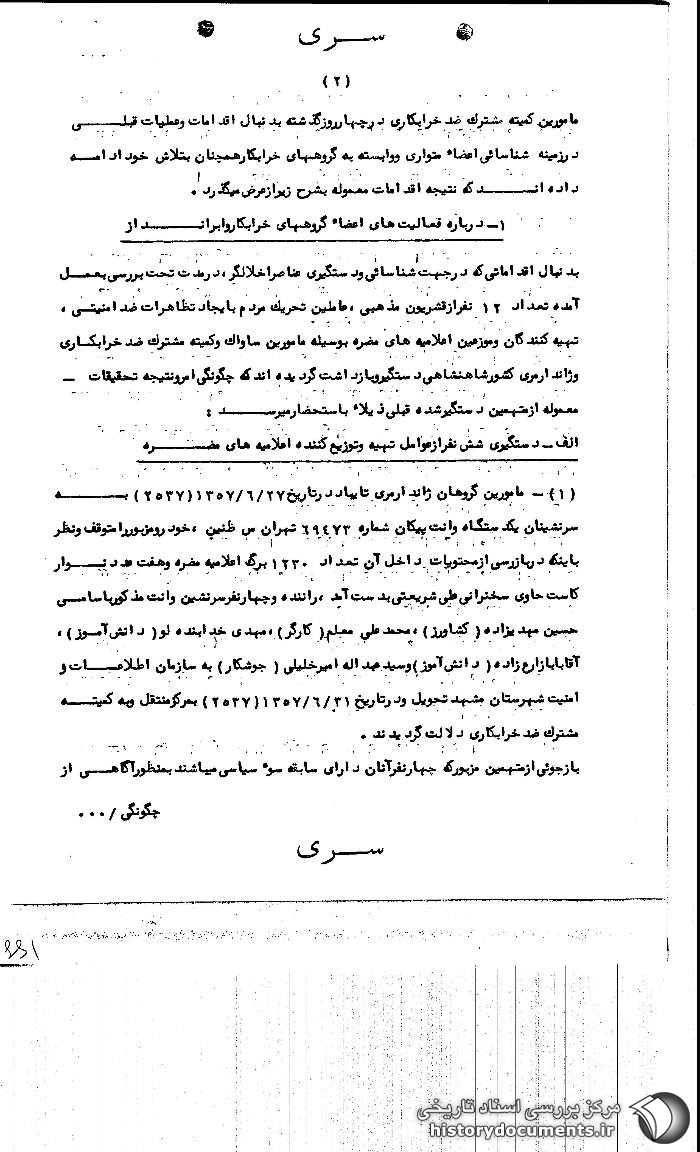 سری
(۲)
مامورین کمیته مشترك ضد خرابکاری در چهار روز گذشته بدنبال اقدامات وعملیات قبلی
در زمینه شناسائی اعضاء متواری ووابسته به گروههای خرابکار همچنان بتلاش خود ادامه
داده اند که نتیجه اقدامات معموله بشرح زیر از عرض میگذرد.
۱- درباره فعالیت های اعضاء گروههای خرابکار و برانداز
بدنبال اقداماتی که در جهت شناسائی ودستگیری عناصر اخلالگر، در مدت تحت بررسی بعمل
آمده تعداد ۱۲ نفر از قشریون مذهبی، عاملین تحریك مردم بایجاد تظاهرات ضد امنیتی،
تهیه کنندگان وموزعین اعلامیه های مضره بوسیله مامورین ساواك وکمیته مشترك ضد خرابکاری
وژاندارمری کشور شاهنشاهی دستگیر وبازداشت گردیده اند که چگونگی امر ونتیجه تحقیقات -
معموله از متهمین دستگیر شده قبلی ذیلاً باستحضار میرسد :
الف - دستگیری شش نفر از عوامل تهیه وتوزیع کننده اعلامیه های مضره
(۱) - مامورین گروهان ژاندارمری تایباد در تاریخ ۱۳۵۷/۶/۲۷ (۲۵۳۷) به
سرنشینان یکدستگاه وانت پیکان شماره ۶۹۴۷۳ تهران س ظنین، خودرو مزبور را متوقف ونظر
باینکه در بازرسی از محتویات داخل آن تعداد ۱۲۳۰ برگ اعلامیه مضره وهفت عدد نوار
کاست حاوی سخنرانی علی شریعتی بدست آمد، راننده وچهار نفر سرنشین وانت مذکور باسامی
حسین مهدیزاده (کشاورز)، محمدعلی معلم (کارگر)، مهدی خدابنده لو (دانش آموز)،
آقابابا زارع زاده (دانش آموز) وسید عبداله امیرخلیلی (جوشکار) به سازمان اطلاعات و
امنیت شهرستان مشهد تحویل ودر تاریخ ۱۳۵۷/۶/۳۱ (۲۵۳۷) بمرکز منتقل وبه کمیته
مشترك ضد خرابکاری دلالت گردیدند.
بازجوئی از متهمین مزبور که چهار نفر آنان دارای سابقه سوء سیاسی میباشند بمنظور آگاهی از
چگونگی /...
سری
مرکز بررسی اسناد تاریخی
historydocuments.ir